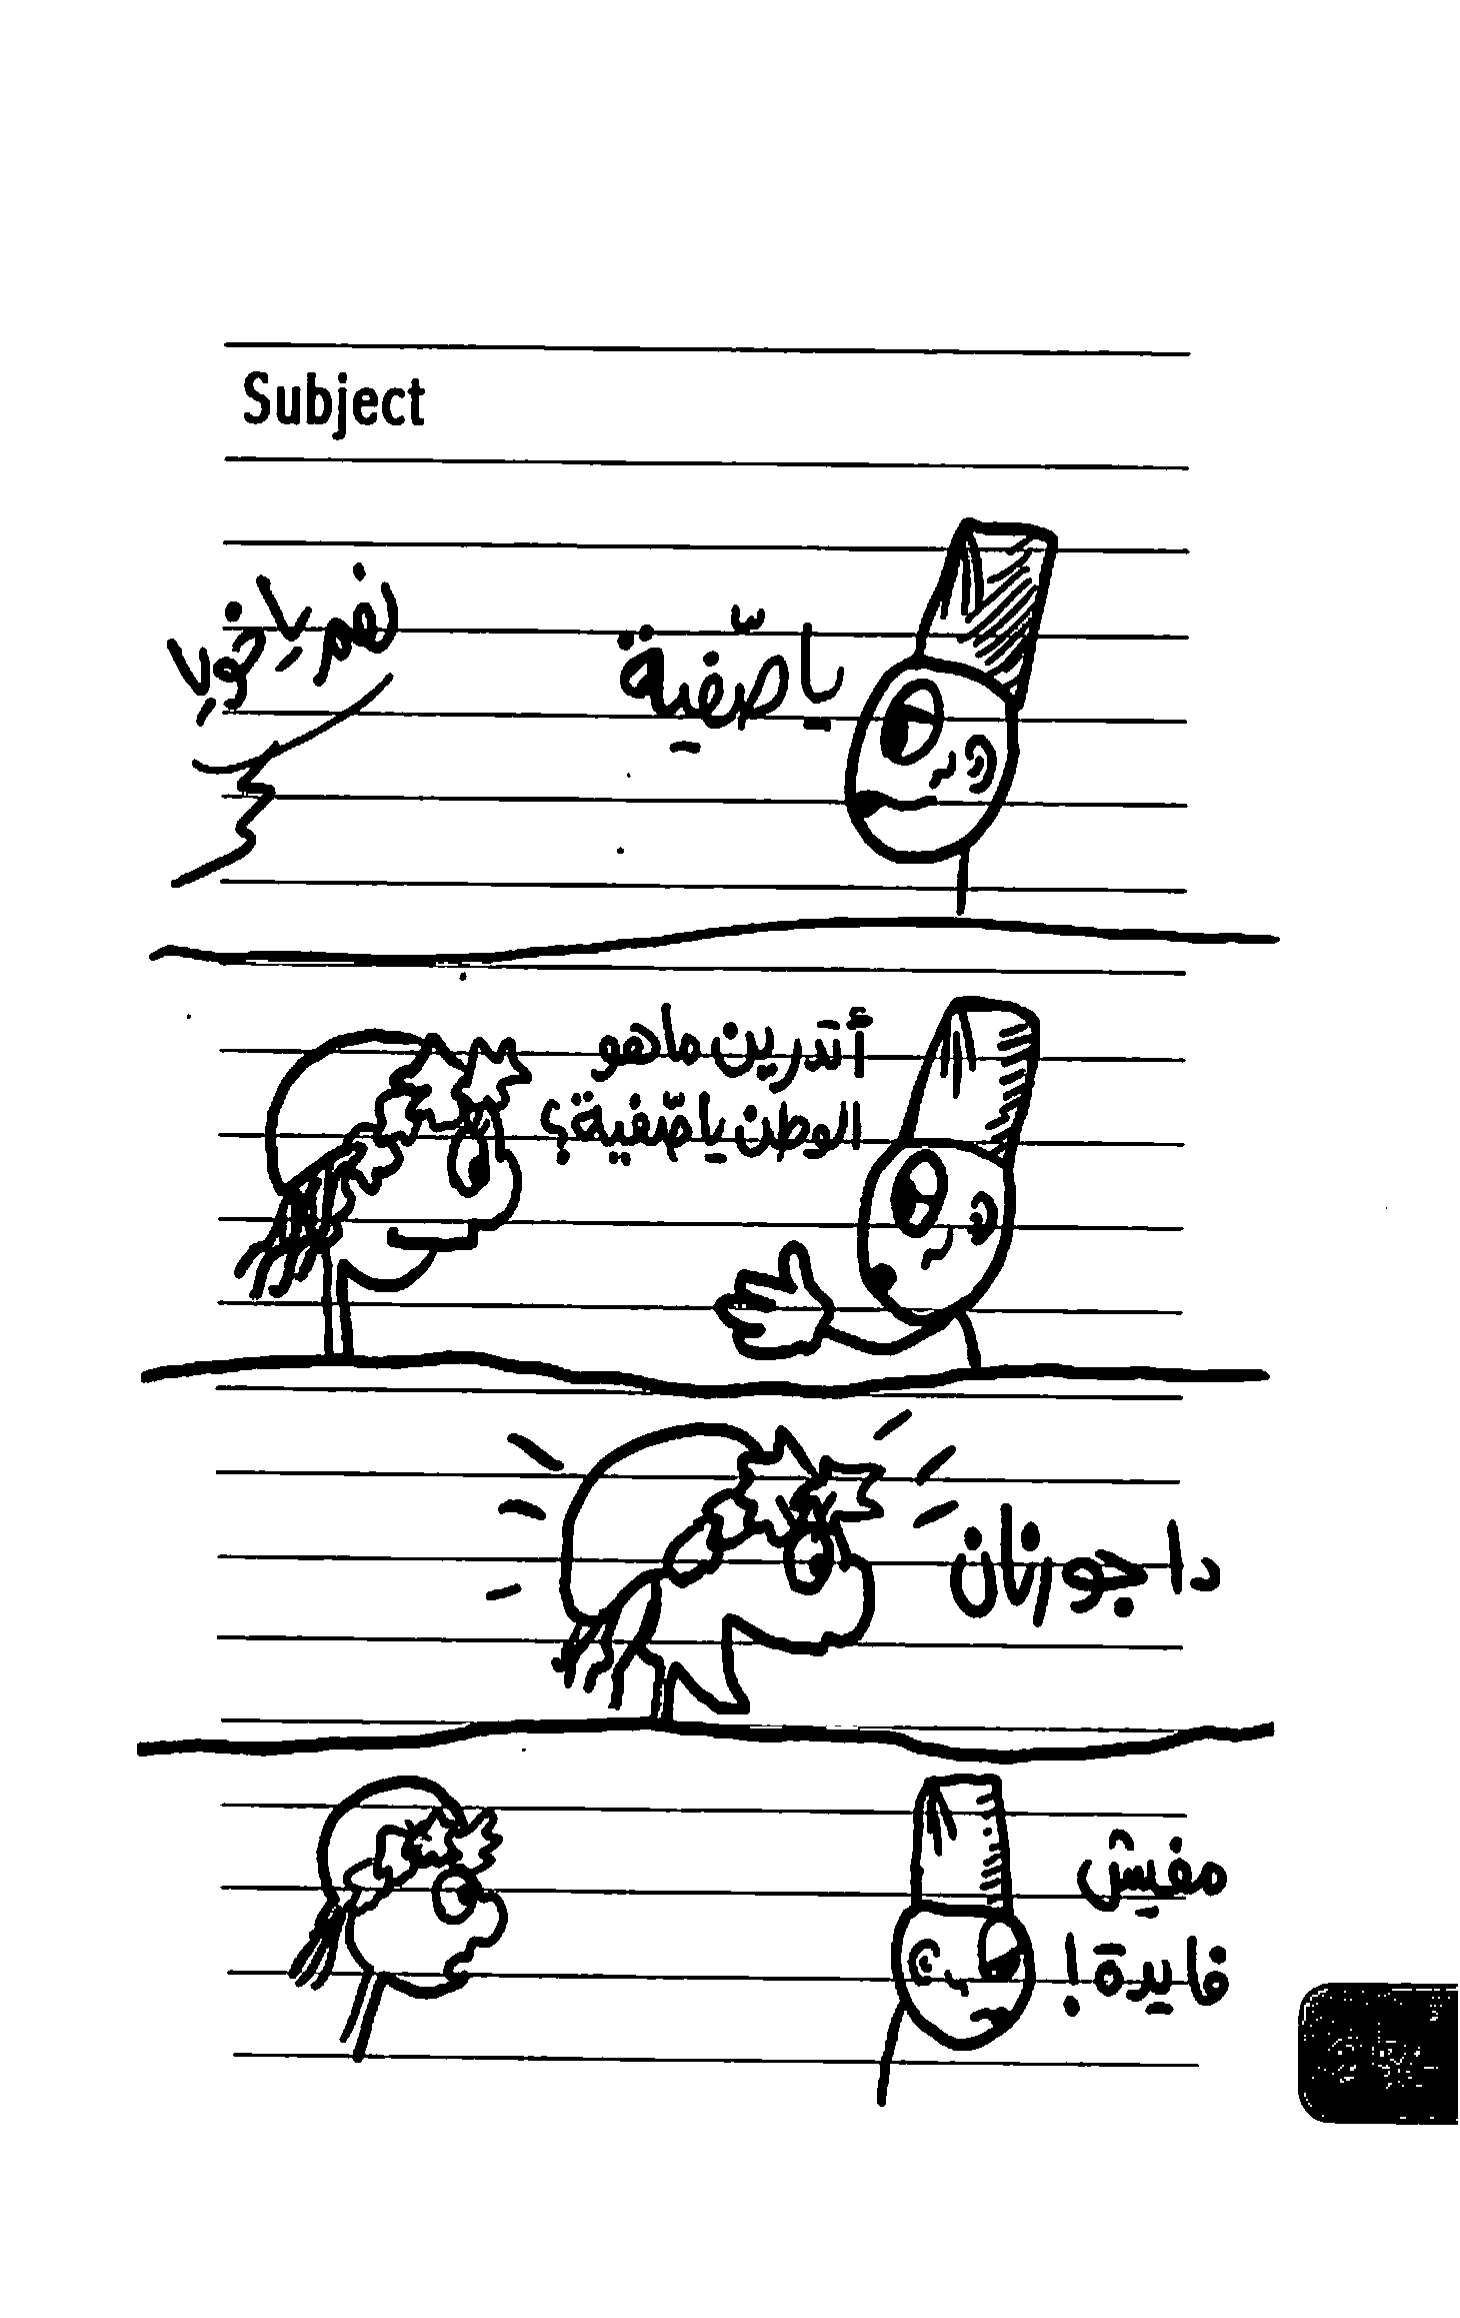 Subject
يا صفيّة
نعم يا خويا
أتدرين ما هو
الوطن يا صفيّة؟
دا جورنان
مفيش
فايدة!